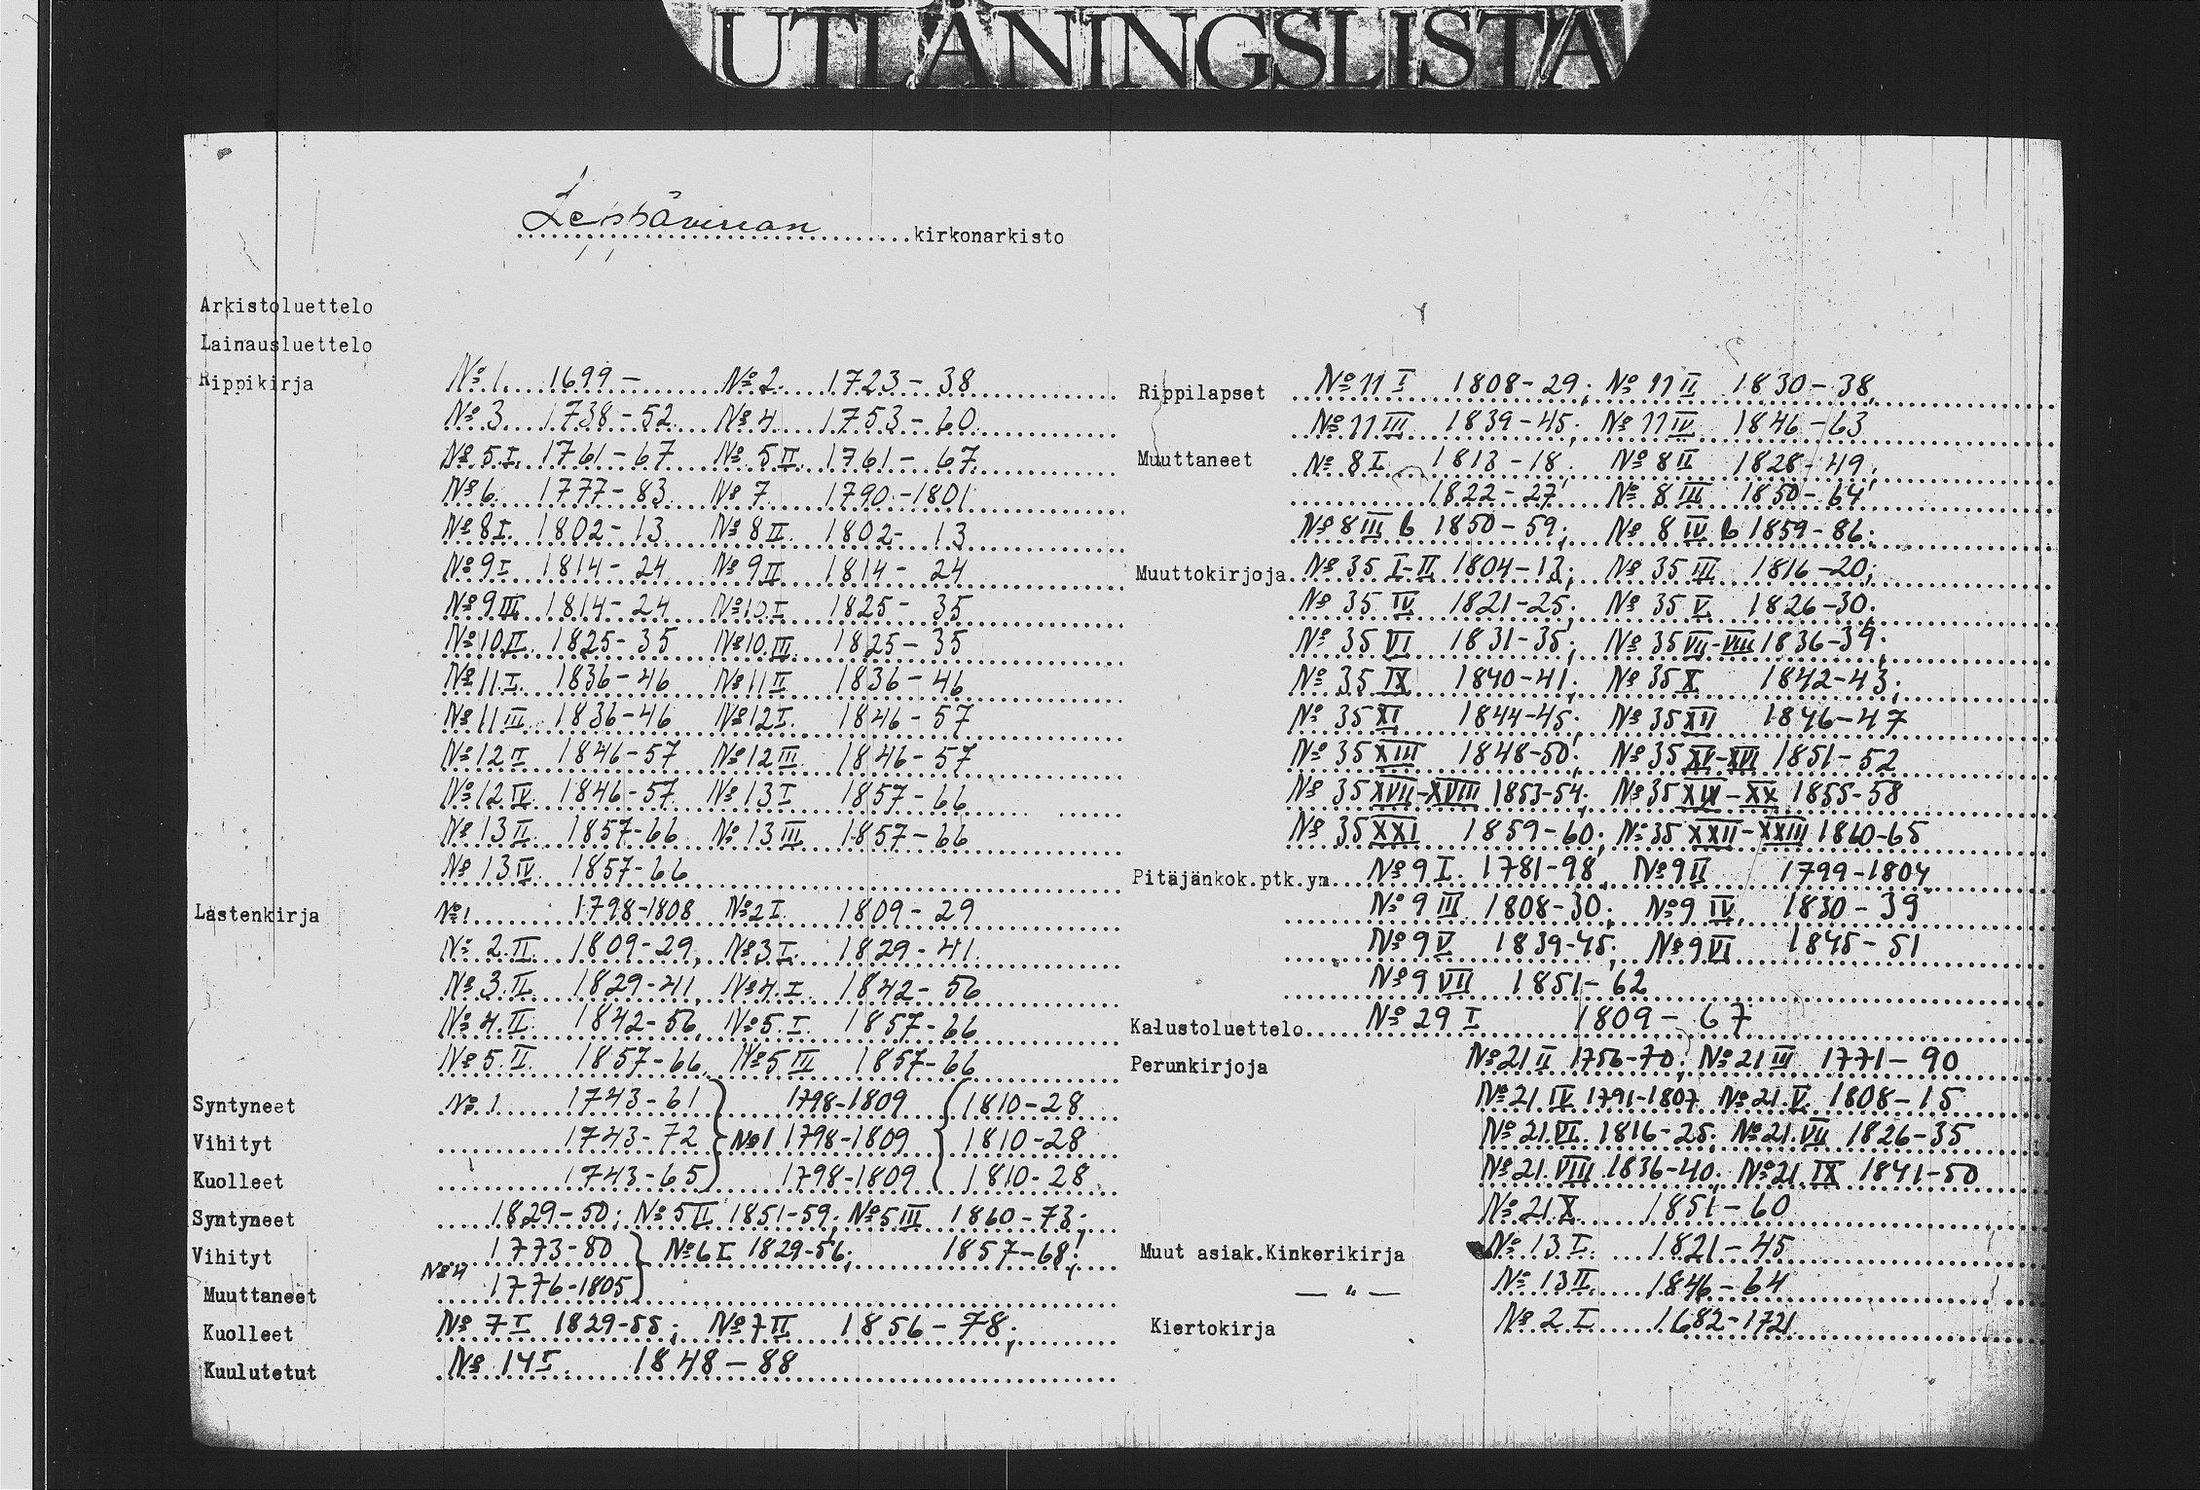 UTLÅNINGSLISTA
Leppävirran kirkonarkisto
Arkistoluettelo
Lainausluettelo
Rippikirja No 1. 1699 – No 2. 1723 – 38
No 3. 1738 – 52 No 4. 1753 – 60
No 5 I. 1761 – 67 No 5 II. 1761 – 67
No 6. 1777 – 83 No 7. 1790 – 1801
No 8 I. 1802 – 13 No 8 II. 1802 – 13
No 9 I 1814 – 24 No 9 II 1814 – 24
No 9 III 1814 – 24 No 10 I 1825 – 35
No 10 II 1825 – 35 No 10 III 1825 – 35
No 11 I. 1836 – 46 No 11 II 1836 – 46
No 11 III 1836 – 46 No 12 I. 1846 – 57
No 12 II 1846 – 57 No 12 III 1846 – 57
No 12 IV 1846 – 57 No 13 I 1857 – 66
No 13 II. 1857 – 66 No 13 III 1857 – 66
No 13 IV 1857 – 66
Lastenkirja No 1. 1798-1808 No 2 I. 1809 – 29
No 2. II 1809 – 29, No 3 I. 1829 – 41
No 3. II 1829 – 41, No 4. I. 1842 – 56
No 4. II. 1842 – 56, No 5. I. 1857 – 66
No 5. II. 1857 – 66, No 5 III 1857 – 66
Syntyneet No 1 1743 – 61 } 1798-1809 { 1810 – 28
Vihityt 1743 – 72 } No 1 1798-1809 { 1810 – 28
Kuolleet 1743 – 65 } 1798-1809 { 1810 – 28
Syntyneet 1829 – 50; No 5 II 1851 – 59; No 5 III 1860 – 73;
Vihityt 1773 – 80 } No 6 I 1829-56; 1857 – 68;
No 4
Muuttaneet 1776 – 1805 }
Kuolleet No 7 I 1829-55; No 7 II 1856 – 78;
Kuulutetut No 14 I. 1848 – 88
Rippilapset No 11 I 1808 – 29; No 11 II 1830 – 38,
No 11 III 1839 – 45; No 11 IV 1846 – 63
Muuttaneet No 8 I 1813 – 18; No 8 II 1828 – 49;
1822 – 27 No 8 III 1850 – 64
No 8 III b 1850 – 59; No 8 IV b 1859 – 86;
Muuttokirjoja No 35 I-II 1804 – 12; No 35 III 1816 – 20;
No 35 IV 1821 – 25; No 35 V 1826 – 30;
No 35 VI 1831 – 35; No 35 VII-VIII 1836 – 39;
No 35 IX 1840 – 41; No 35 X 1842 – 43;
No 35 XI 1844-45; No 35 XII 1846 – 47
No 35 XIII 1848-50; No 35 XV-XVI 1851 – 52
No 35 XVII-XVIII 1853-54; No 35 XIX – XX 1855-58
No 35 XXI 1859 – 60; No 35 XXII – XXIII 1860-65
Pitäjänkok.ptk.ym No 9 I. 1781-98 No 9 II 1799-1804
No 9 III 1808-30; No 9 IV. 1830 – 39
No 9 V 1839-45; No 9 VI 1845 – 51
No 9 VII 1851 – 62
Kalustoluettelo No 29 I 1809 – 67
Perunkirjoja No 21 II 1756-70; No 21 III 1771 – 90
No 21 IV 1791-1807 No 21. V 1808 – 15
No 21. VI 1816 – 25; No 21. VII 1826 – 35
No 21. VIII 1836-40; No 21. IX 1841-50
No 21 X 1851 – 60
Muut asiak.Kinkerikirja No 13 I. 1821 – 45
— " — No 13 II. 1846 – 64
Kiertokirja No 2 I 1682-1721